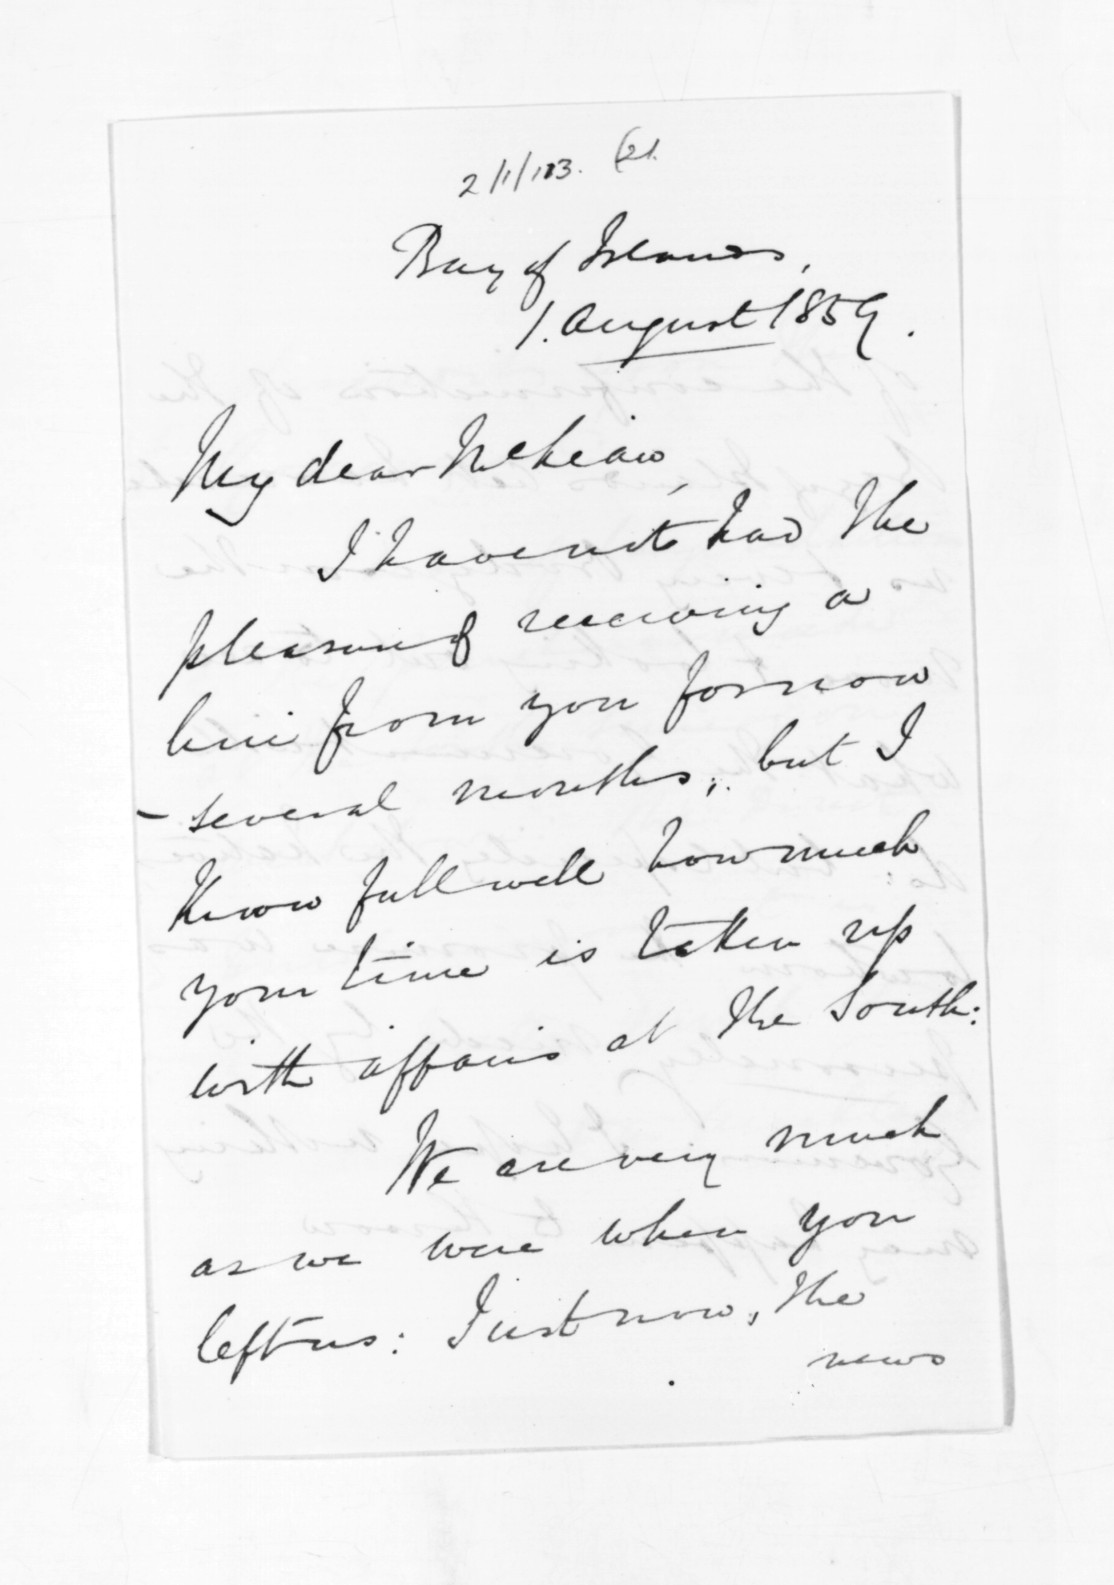 2/1/113. (21.
Bay of Islands,
1. August 1859.
My dear McLean,
I have not had the
pleasure of receiving a
line from you for now
several months; but I
know full well how much
your time is taken up
with affairs at the South:
We are very much
as we were when you
left us: Just now, the
news